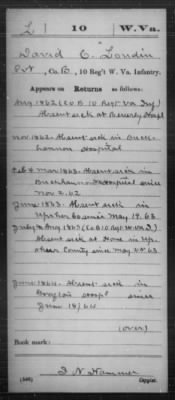 L | 10 | W.Va.
David C. Loudin
Pvt., Co. B, 10 Reg't W. Va. Infantry.
Appears on Returns as follows:
Aug 1862 (Co B 10 Regt Va Inf)
Absent sick at Beverly Hosp
Nov 1862. Absent sick in Buck-
hannon Hospital
Feb & Mar 1863. Absent sick in
Buckhannon Hospital since
Nov 2, 62
June 1863. Absent sick in
Upshur Co since May 19. 63
July & Aug 1863 (Co B 10 Regt W. Va I)
Absent sick at Home in Up-
shur County since May 63
June 1864. Absent sick in
Hosp since
18/64
(over)
Book mark:
J N Hammer
(546) Copyist.